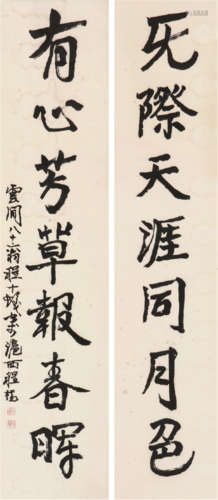 无際天涯同月色
有心芳草報春暉
雲間八十翁程十髮書於滬西程樓